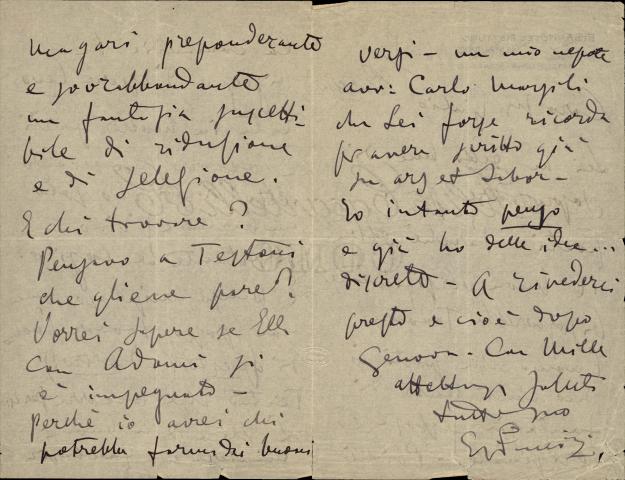 magari preponderante
e sovrabbondante
una fantasia suscetti-
bile di riduzione
e di selezione.
E chi trovare?
Pensavo a Testoni
che gliene pare?
Vorrei sapere se Ella
con Adami si
è impegnato -
perchè io avrei chi
potrebbe fornirci buoni
versi - un mio nepote
avv: Carlo Marsili
che Lei forse ricorda
per avere scritto già
su ars et Labor -
Io intanto penso
e già ho delle idee...
discrete - A rivederci
presto e cioè dopo
Genova. Con mille
affettuosi saluti
tutto suo
GPuccini